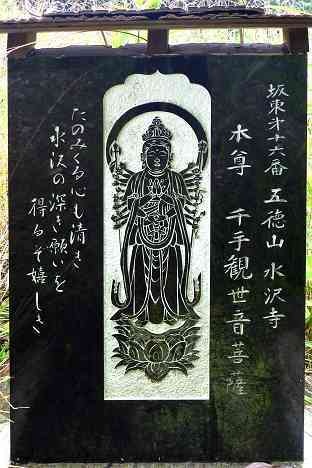 坂東才十六番 五徳山 水沢寺
本尊 千手観世音菩薩
たのみくる心も清き
水沢の深き願いを
得るぞ嬉しき